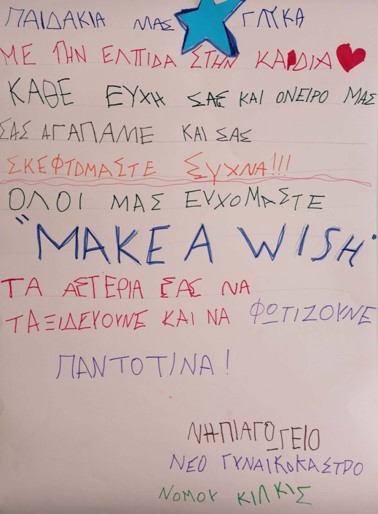 ΠΑΙΔΑΚΙΑ ΜΑΣ ΓΛΥΚΑ
ΜΕ ΤΗΝ ΕΛΠΙΔΑ ΣΤΗΝ ΚΑΡΔΙΑ
ΚΑΘΕ ΕΥΧΗ ΣΑΣ ΚΑΙ ΟΝΕΙΡΟ ΜΑΣ
ΣΑΣ ΑΓΑΠΑΜΕ ΚΑΙ ΣΑΣ
ΣΚΕΦΤΟΜΑΣΤΕ ΣΥΧΝΑ!!!
ΟΛΟΙ ΜΑΣ ΕΥΧΟΜΑΣΤΕ
"MAKE A WISH"
ΤΑ ΑΣΤΕΡΙΑ ΣΑΣ ΝΑ
ΤΑΞΙΔΕΥΟΥΝΕ ΚΑΙ ΝΑ ΦΩΤΙΖΟΥΝΕ
ΠΑΝΤΟΤΙΝΑ!
ΝΗΠΙΑΓΩΓΕΙΟ
ΝΕΟ ΓΥΝΑΙΚΟΚΑΣΤΡΟ
ΝΟΜΟΥ ΚΙΛΚΙΣ